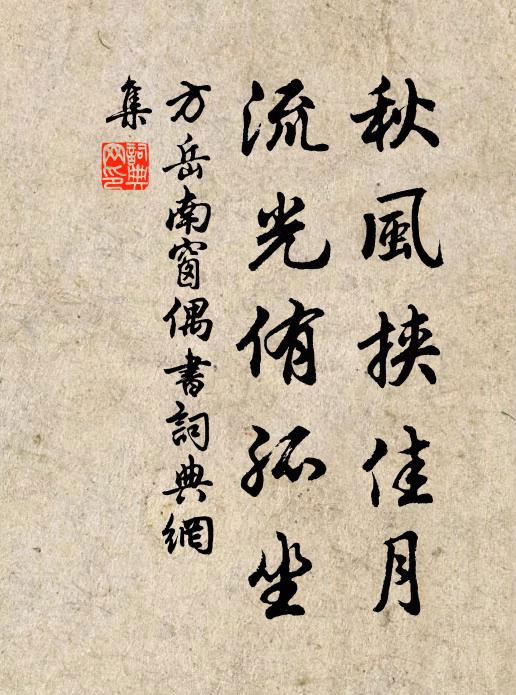 秋風挾佳月
流光侑孤坐
方岳南窗偶書詞典網
集
詞典
网印